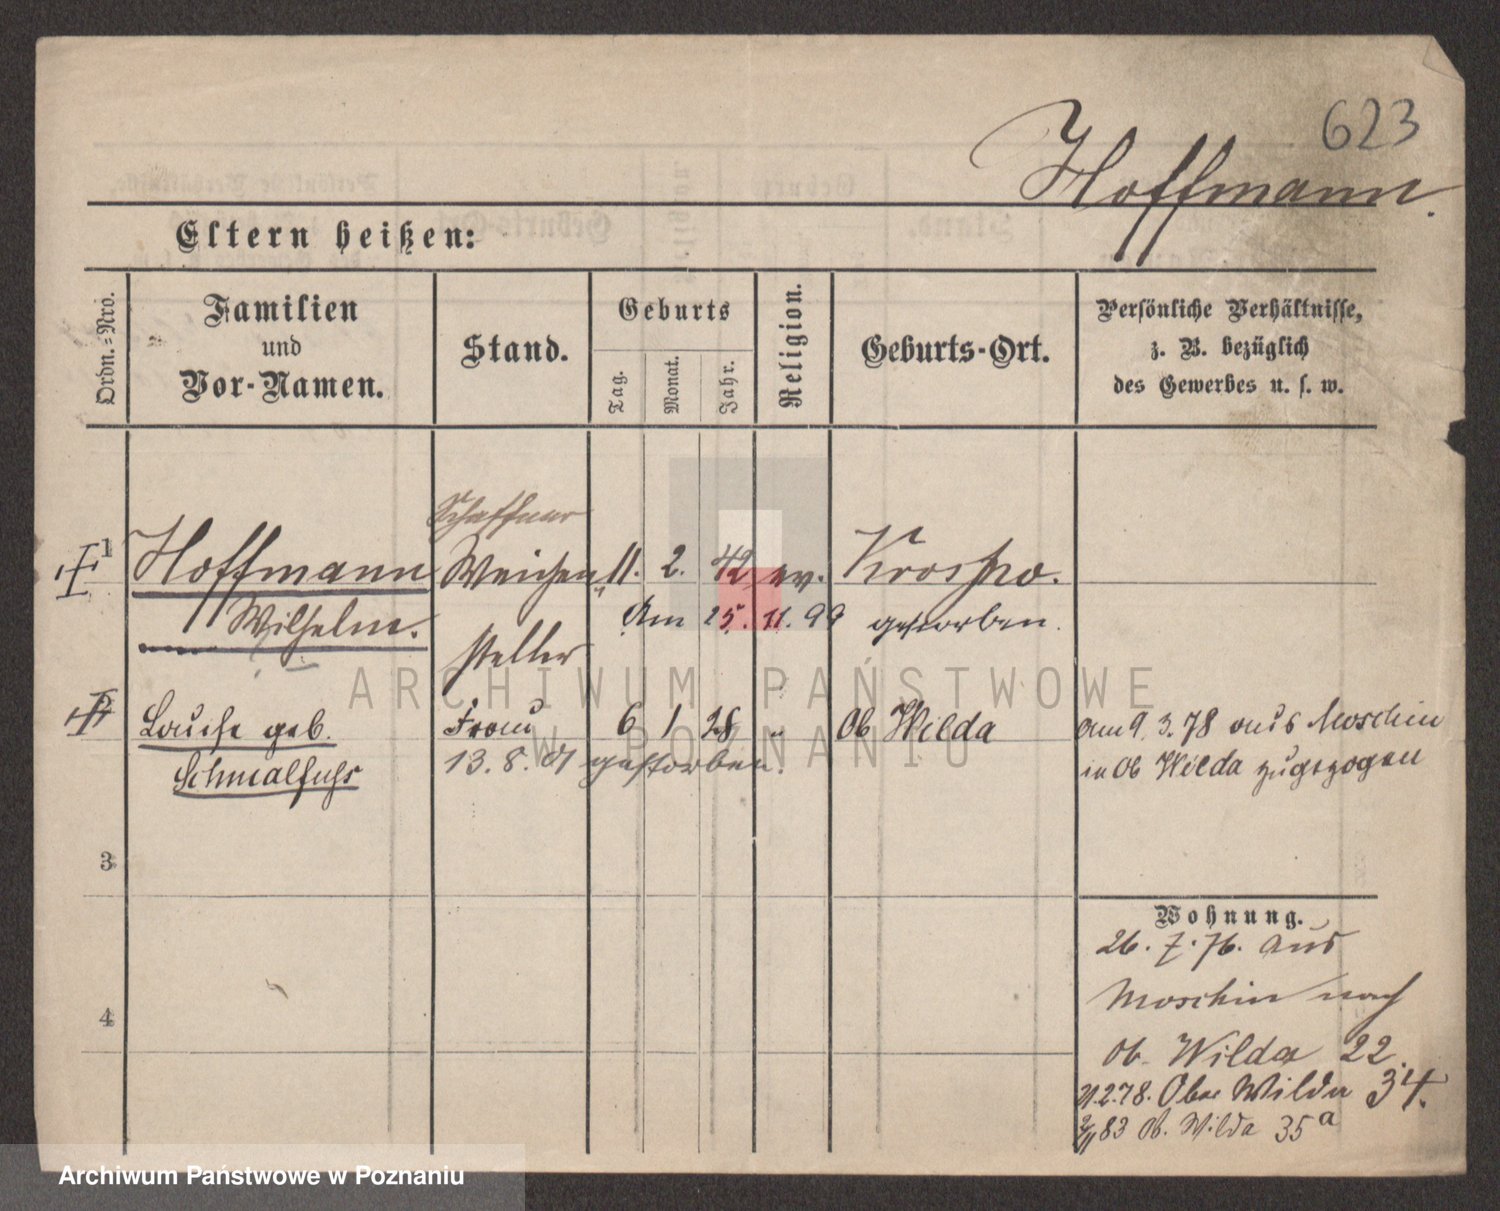 623
Hoffmann.
Eltern heißen:
Ordn.=Nro.
Familien
und
Vor-Namen.
Stand.
Geburts
Tag.
Monat.
Jahr.
Religion.
Geburts-Ort.
Persönliche Verhältnisse,
z. B. bezüglich
des Gewerbes u. s. w.
Schaffner
1 Hoffmann Weichen 11. 2. 42 ev. Krospo.
Wilhelm. Am 25. 11. 99 gestorben.
steller
2 Louise geb. Frau 6 1 28 " Ob Wilda am 9.3.78 aus Moschin
Schmalfuss 13. 8. 01 gestorben. in Ob Wilda zugezogen
3
Wohnung.
26. 7. 76. aus
Moschin nach
4
Ob. Wilda 22.
21.2.78. Ober Wilda 34.
83 Ob. Wilda 35a
ARCHIWUM PAŃSTWOWE
W POZNANIU
Archiwum Państwowe w Poznaniu